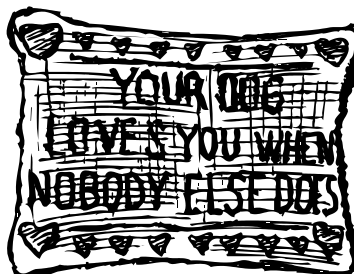 YOUR DOG
LOVES YOU WHEN
NOBODY ELSE DOES